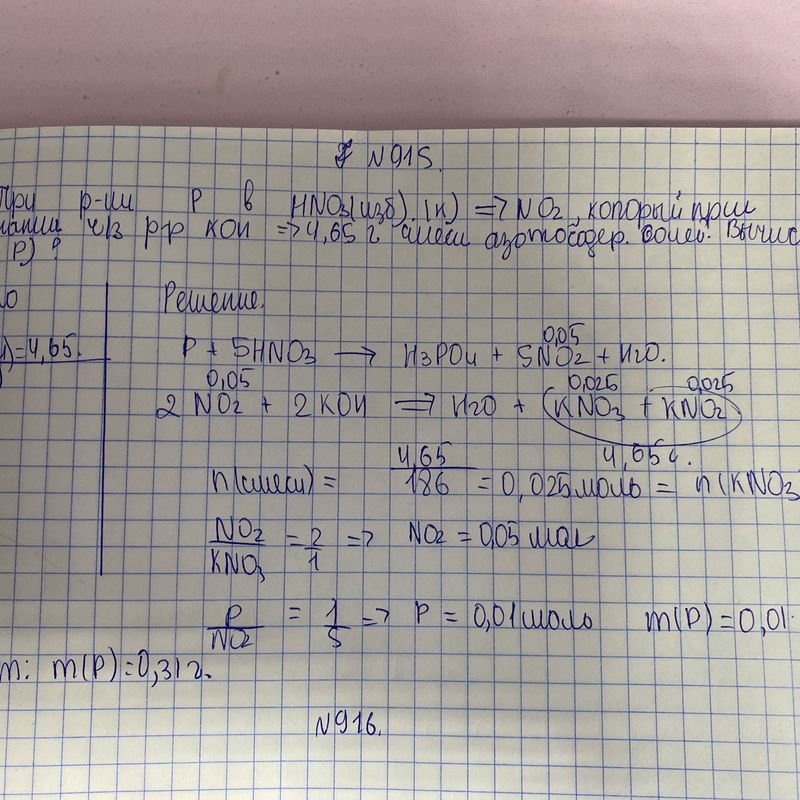 №915.
При р-ции P в HNO3(изб).(к) => NO2, который при
ч/з р-р KOH => 4,65 г смеси азотосодер. солей. Вычис
P)?
Решение.
)=4,65.
0,05
P + 5HNO3 → H3PO4 + 5NO2 + H2O.
0,05 0,025 0,025
2 NO2 + 2 KOH => H2O + (KNO3 + KNO2)
4,65 г.
n(смеси) = 4,65/186 = 0,025 моль = n(KNO3
NO2/KNO3 = 2/1 => NO2 = 0,05 мол
P/NO2 = 1/5 => P = 0,01 моль m(P) = 0,01·
т: m(P) = 0,31 г.
№916.